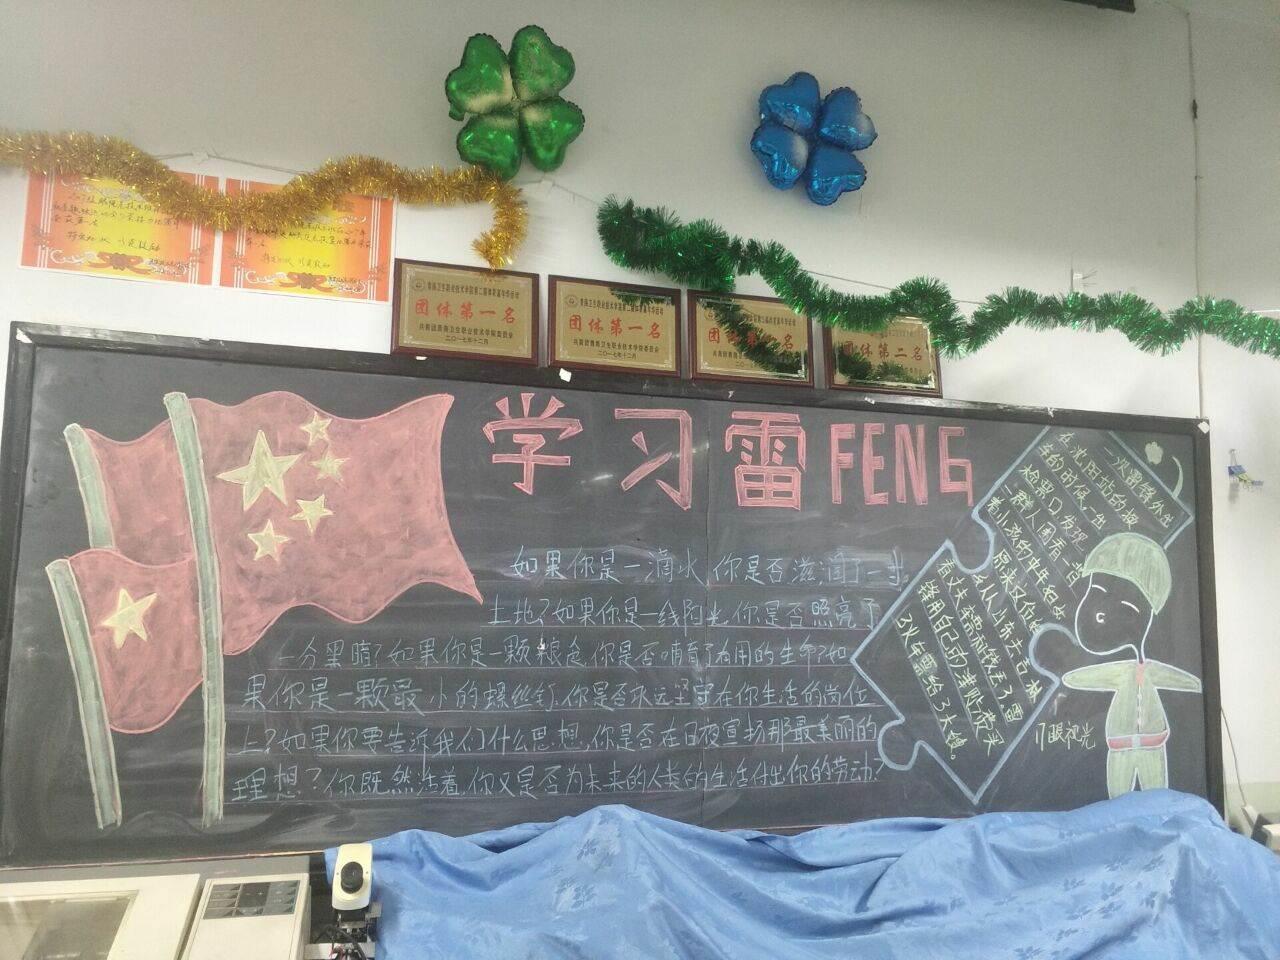 团体第一名
共青团贵阳卫生职业技术学院委员会
二〇一七年十二月
团体第一名
共青团贵阳卫生职业技术学院委员会
二〇一七年十二月
团体第一名
团体第二名
学习雷FENG
如果你是一滴水,你是否滋润了一寸
土地?如果你是一线阳光,你是否照亮了
一分黑暗?如果你是一颗粮食,你是否哺育了有用的生命?如
果你是一颗最小的螺丝钉,你是否永远坚守在你生活的岗位
上?如果你要告诉我们什么思想,你是否在日夜宣扬那最美丽的
理想?你既然活着,你又是否为未来的人类的生活付出你的劳动?
一次雷锋外出
在沈阳站的换
车的时候,一出
检票口发现
一群人围着一背
着小孩的中年妇女
原来
从山东去吉林
看丈夫车票和钱丢了雷
锋用自己的津贴费买
了火车票给了大嫂。
17眼视光